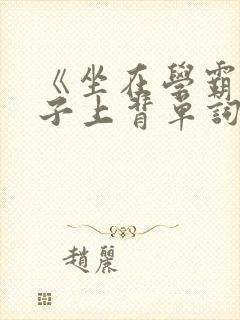 《坐在學霸
子上背單詞
趙麗